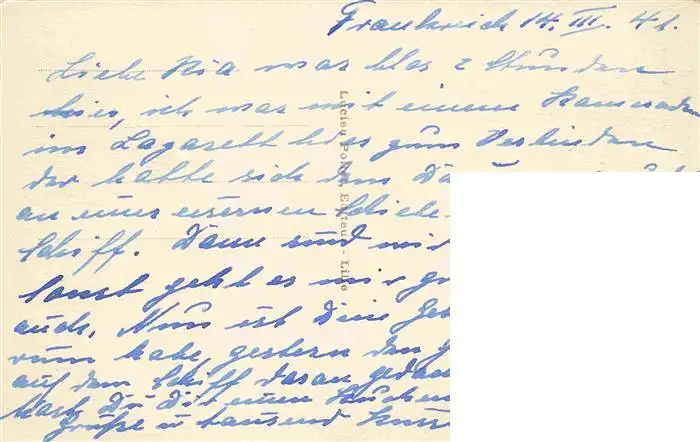 Frankreich 14. III. 41.
Liebe Ria war blos 2 Stunden
hier, ich war mit einem Kameraden
im Lazarett hier zum Verbinden
der hatte sich den Dau
an einer eisernen Schiebe
Schiff. Dann sind wir
sonst geht es mir gu
auch. Nun ist Dein Geb
rum habe, gestern den g
auf dem Schiff daran gedac
hast Du Dir einen Kuchen
Grüße u tausend Küss
Lucien Pollet, Editeur - Lille